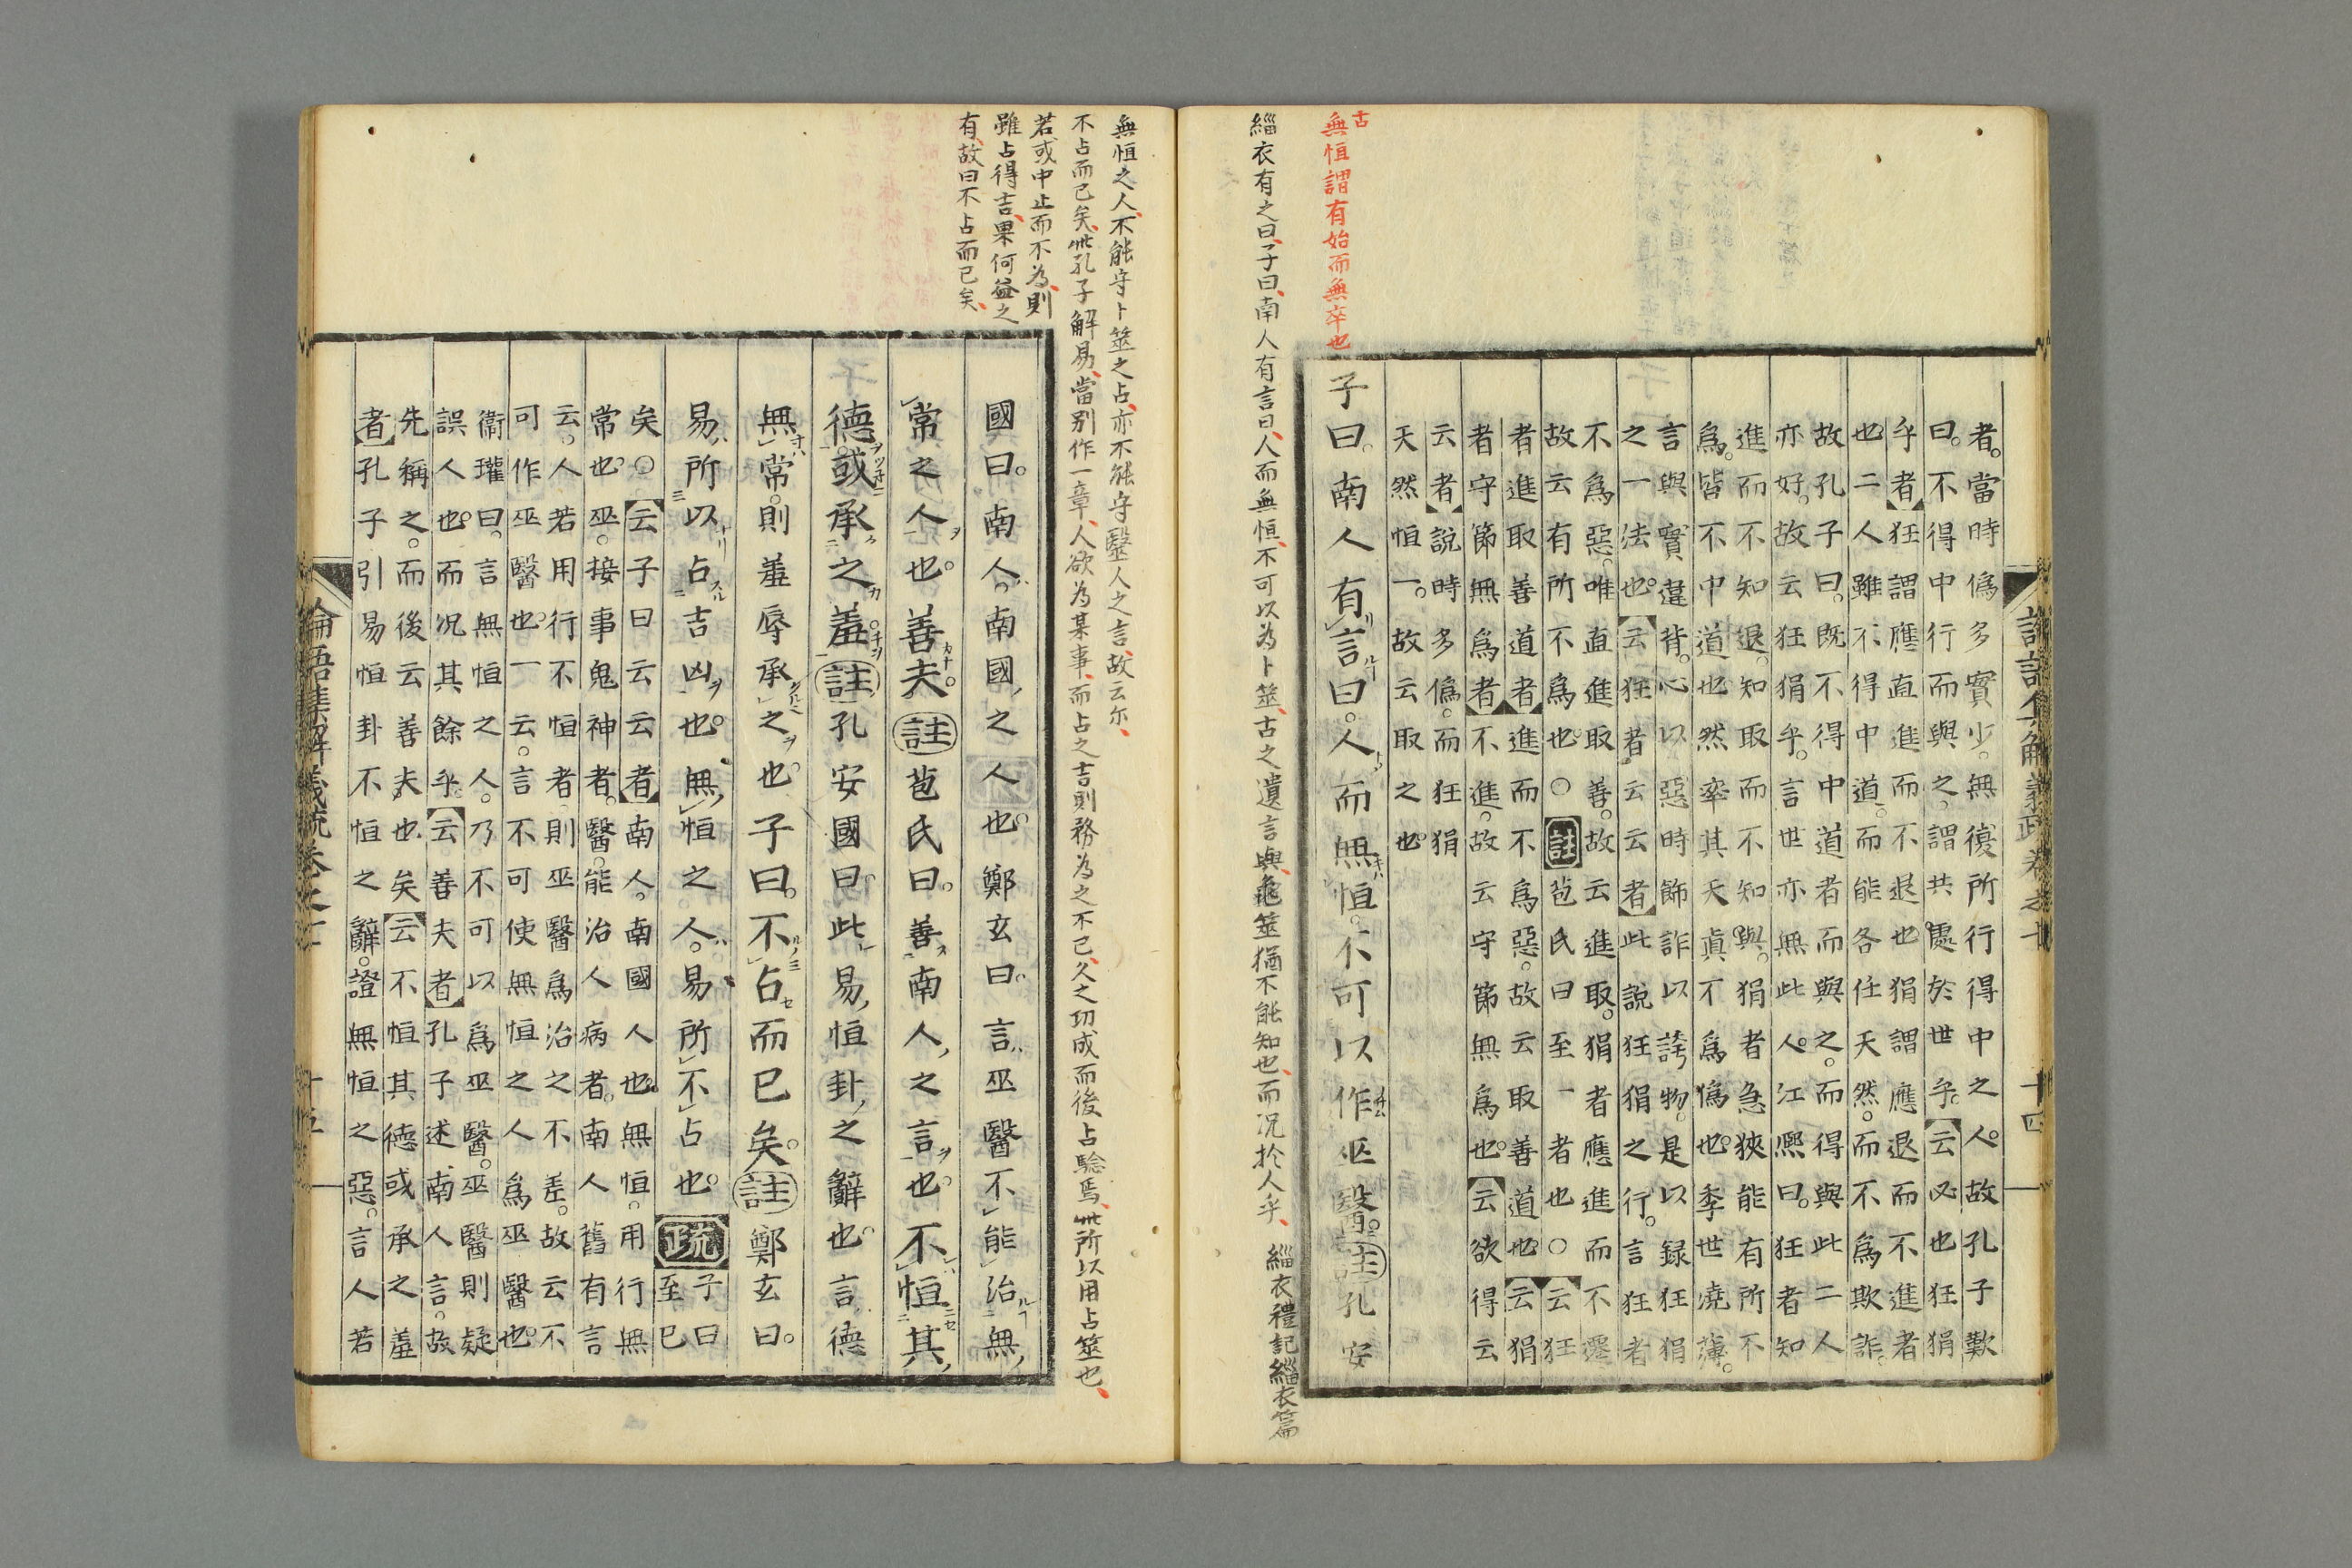 論語集解義疏卷之七　十四
者。當時偽多實少。無復所行得中之人。故孔子歎
曰。不得中行而與之。謂共處於世乎。云必也狂狷
乎者狂謂應直進而不退也狷謂應退而不進者
也二人雖不得中道。而能各任天然。而不爲欺詐。
故孔子曰。既不得中道者而與之。而得與此二人
亦好。故云狂狷乎。言世亦無此人。江熈曰。狂者知
進而不知退。知取而不知與。狷者急狹能有所不
爲。皆不中道也然率其天眞不爲僞也。季世澆薄。
言與實違背。心以惡時飾詐以誇物。是以録狂狷
之一法也。云狂者云云者此說狂狷之行。言狂者
不爲惡。唯直進取善。故云進取。狷者應進而不遷
故云有所不爲也。○註苞氏曰至一者也○云狂
者進取善道者進而不爲惡。故云取善道也云狷
者守節無爲者不進。故云守節無爲也。云欲得云
云者說時多偽。而狂狷
天然恒一。故云取之也。
子曰。南人有言曰。人而無恒。不可以作巫醫。註孔安
古
無恒謂有始而無卒也
緇衣有之曰、子曰、南人有言曰、人而無恒、不可以為卜筮、古之遺言與、龜筮猶不能知也、而況於人乎、
緇衣禮記緇衣篇
無恒之人、不能守卜筮之占、亦不能守醫人之言、故云尓、
不占而已矣、此孔子解易、當别作一章、人欲為某事、而占之吉則務為之不已、久之功成而後占驗焉、此所以用占筮也、
若或中止而不為、則
雖占得吉、果何益之
有、故曰不占而已矣、
國曰。南人。南國之人也。鄭玄曰。言巫醫不能治無
常之人也。善夫。註苞氏曰。善南人之言也。不恒其
德或承之羞註孔安國曰此易恒卦之辭也。言德
無常。則羞辱承之也。子曰。不占而已矣。註鄭玄曰。
易所以占吉凶也。無恒之人。易所不占也。疏子曰至已
矣○云子曰云云者南人。南國人也無恒。用行無
常也。巫。接事鬼神者。醫。能治人病者。南人舊有言
云。人若用行不恒者則巫醫爲治之不差。故云不
可作巫醫也。一云。言不可使無恒之人爲巫醫也。
衞瓘曰。言無恒之人。乃不可以爲巫醫。巫醫則疑
誤人也。而况其餘乎。云善夫者孔子述南人言。故
先稱之。而後云善夫也矣云不恒其德或承之羞
者孔子引易恒卦不恒之辭。證無恒之惡。言人若
論語集解義疏卷之七　十五